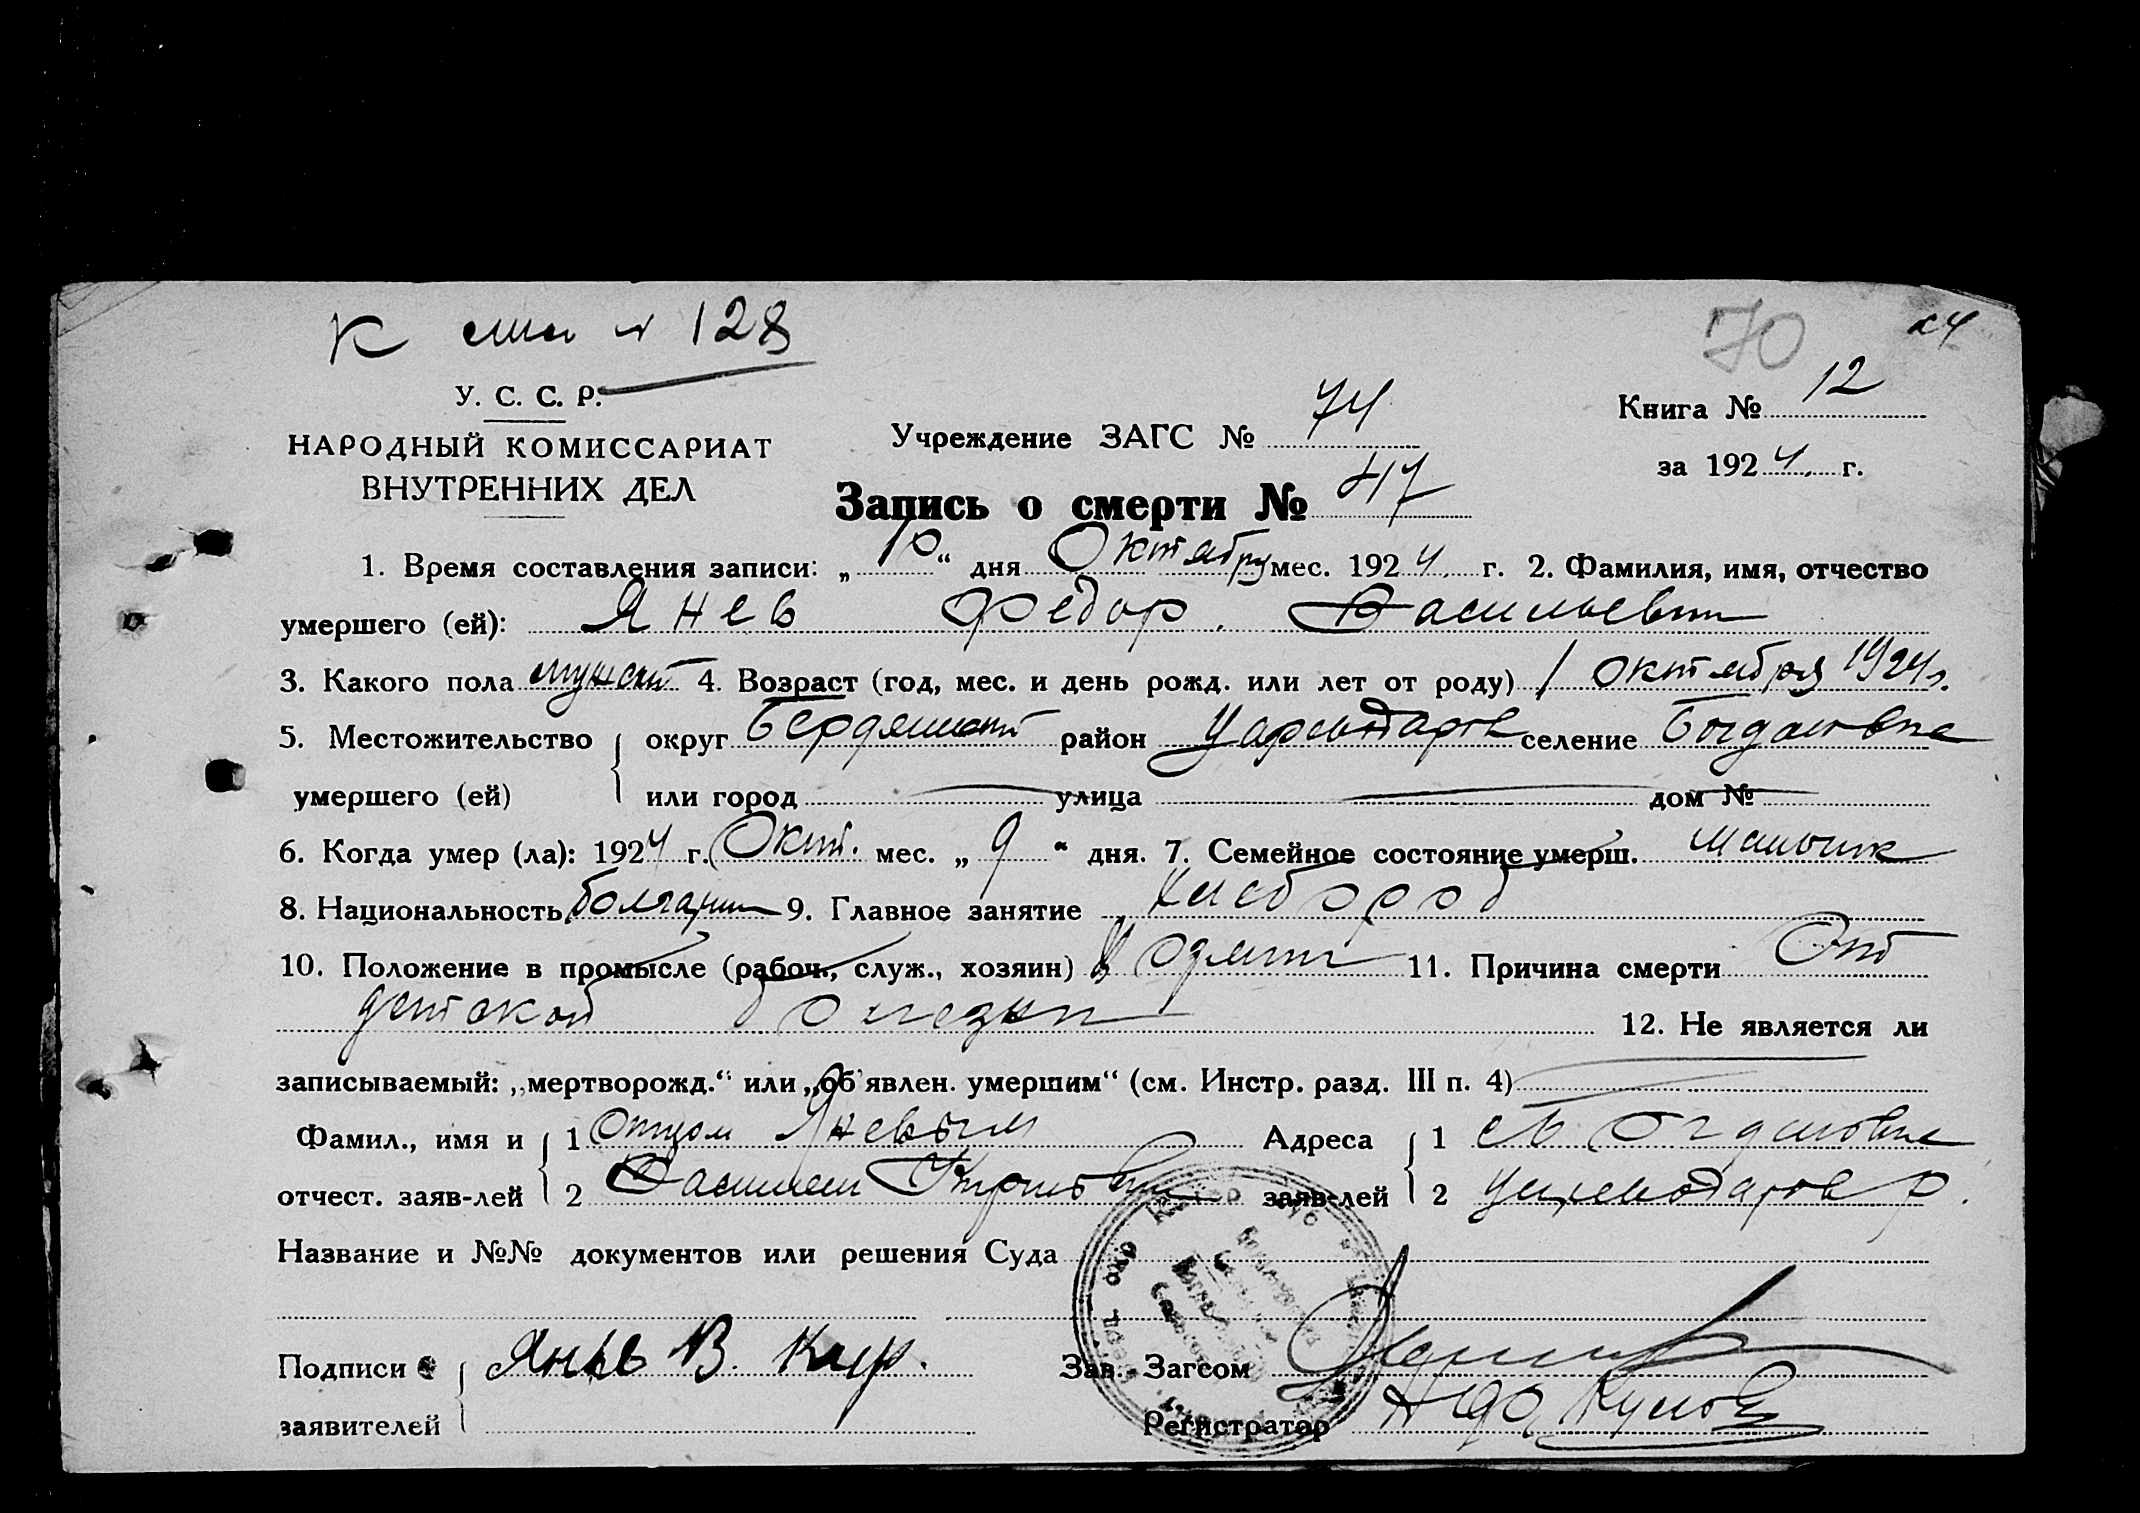 К 128
70
24
У. С. С. Р.
НАРОДНЫЙ КОМИССАРИАТ
ВНУТРЕННИХ ДЕЛ
Учреждение ЗАГС № 74
Книга № 12
за 1924 г.
Запись о смерти № 417
1. Время составления записи: „10“ дня Октября мес. 1924 г. 2. Фамилия, имя, отчество
умершего (ей): Янев Федор Васильевич
3. Какого пола мужской 4. Возраст (год, мес. и день рожд. или лет от роду) 1 октября 1924 г.
5. Местожительство округ Бердянский район Царенодаров селение Богдановка
умершего (ей) или город улица дом №
6. Когда умер (ла): 1924 г. Окт. мес. „9“ дня. 7. Семейное состояние умерш. мальчик
8. Национальность болгарин 9. Главное занятие хлебороб
10. Положение в промысле (рабоч., служ., хозяин) 11. Причина смерти От
детской болезни 12. Не является ли
записываемый: „мертворожд.“ или „об'явлен. умершим“ (см. Инстр. разд. III п. 4)
Фамил., имя и 1 Отцом Яневым Адреса 1 с Богдановка
отчест. заяв-лей 2 Василем заяв-лей 2 Царенодаров р.
Название и №№ документов или решения Суда
Подписи Янев В. Кир. Зав. Загсом
заявителей Регистратор